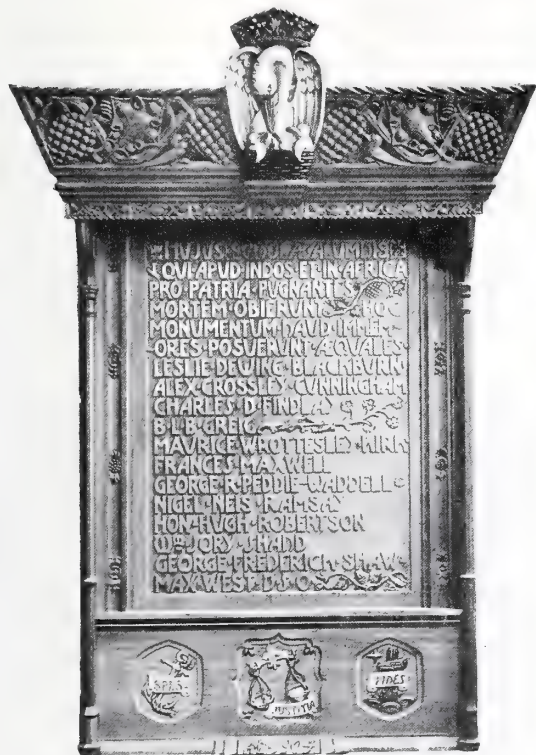 HUJUS·SCHOLÆ·ALUMNIS
QUI·APUD·INDOS·ET·IN·AFRICA
PRO·PATRIA·PUGNANTES
MORTEM·OBIERUNT·HOC
MONUMENTUM·HAUD·IMMEM-
ORES·POSUERUNT·ÆQUALES
LESLIE·DEWING·BLACKBURN
ALEX·CROSSLEY·CUNNINGHAM
CHARLES·D·FINDLAY
B·L·B·GREIG
MAURICE·WROTTESLEY·KIRK
FRANCES·MAXWELL
GEORGE·R·PEDDIE-WADDELL
NIGEL·NEIS·RAMSAY
HON·HUGH·ROBERTSON
WM·JORY·SHADD
GEORGE·FREDERICH·SHAW
MAX·WEST·D·S·O
SPES
JUSTITIA
FIDES